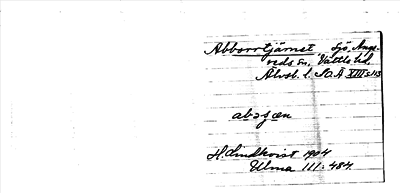 Abborrtjärnet Sjö, Ange-
reds sn, Vättle hd,
Älvsb. l. SOÄ XIII s. 113
abɔʂæn
H. Lindkvist 1904
Ulma 111:484.